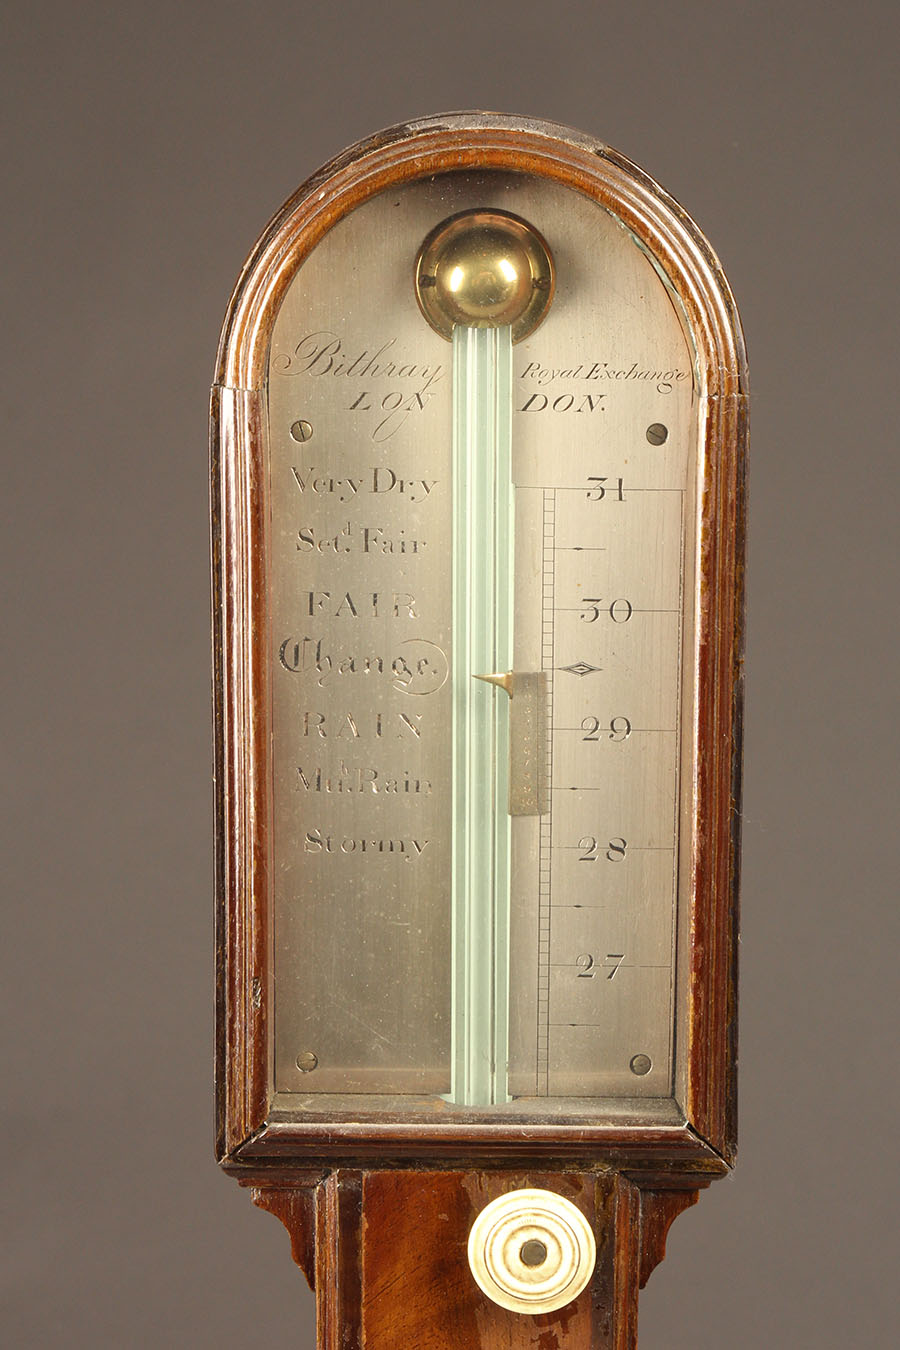 Bithray Royal Exchange
LONDON.
Very Dry 31
Set.d Fair
FAIR 30
Change.
RAIN 29
Mu.h Rain
Stormy 28
27